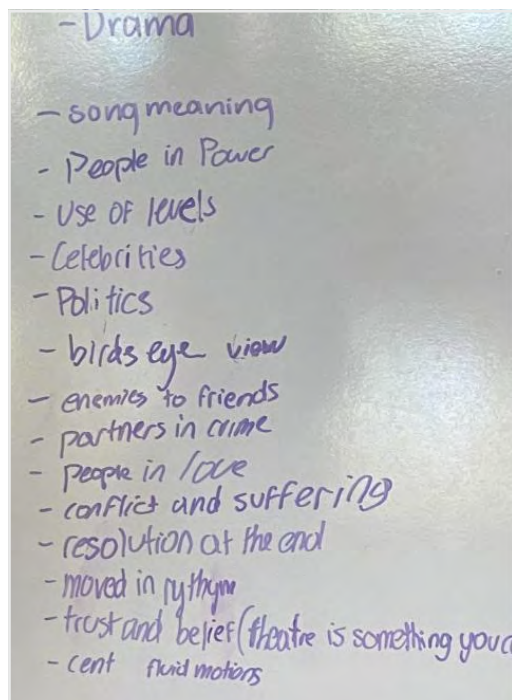 -Drama
- song meaning
- People in Power
- Use of levels
- Celebrities
- Politics
- birds eye view
- enemies to friends
- partners in crime
- people in love
- conflict and suffering
- resolution at the end
- moved in rythym
- trust and belief (theatre is something you
- cent fluid motions